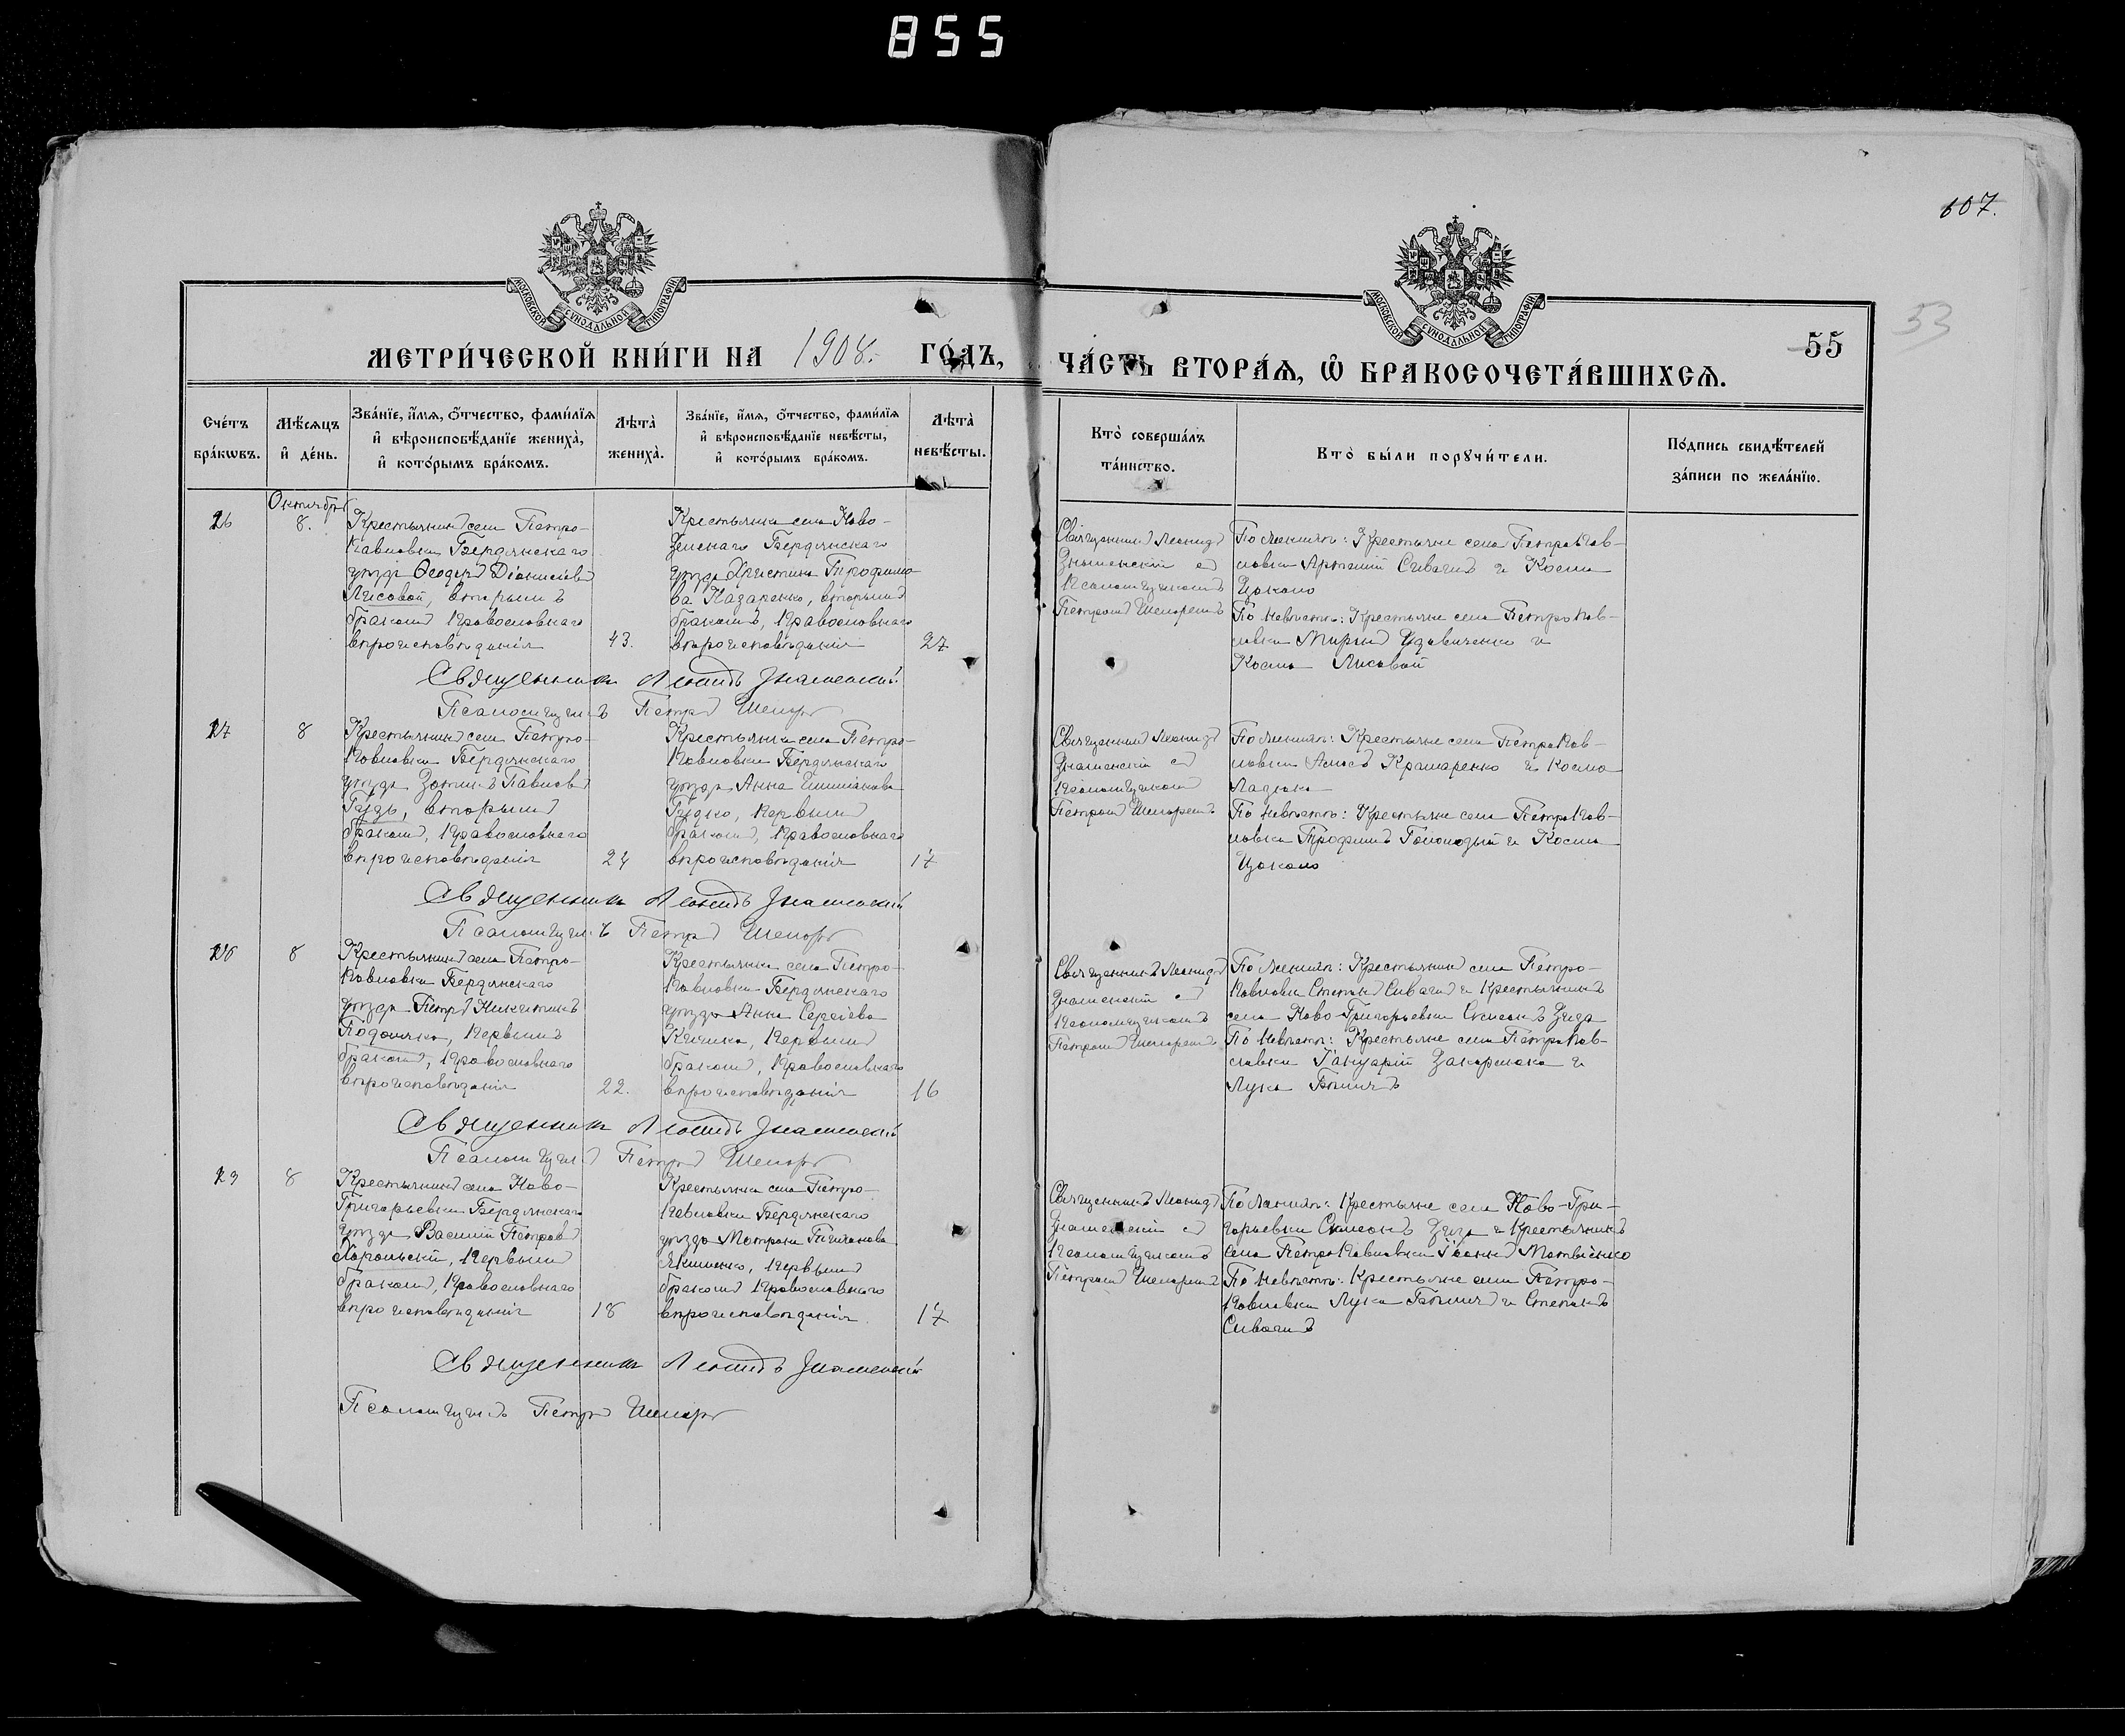 855
607.
53
МОСКОВСКОЙ СУНОДАЛЬНОЙ ТИПОГРАФІИ
МОСКОВСКОЙ СУНОДАЛЬНОЙ ТИПОГРАФІИ
МЕТРИ́ЧЕСКОЙ КНИ́ГИ НА 1908. ГО́ДЪ,
ЧА́СТЬ ВТОРА́Ѧ, Ѡ БРАКОСОЧЕТА́ВШИХСѦ.
55
Сче́тъ бра́кѡвъ.
Мѣ́сѧцъ и҆ де́нь.
Зва́нїе, и҆́мѧ, ѻ҆́тчество, фами́лїѧ и҆ вѣроисповѣ́данїе жениха̀, и҆ кото́рымъ бра́комъ.
Лѣ́та̀ жениха̀.
Зва́нїе, и҆́мѧ, ѻ҆́тчество, фами́лїѧ и҆ вѣроисповѣ́данїе невѣ́сты, и҆ кото́рымъ бра́комъ.
Лѣ́та̀ невѣ́сты.
Кто̀ соверша́лъ та́инство.
Кто̀ бы́ли порꙋчи́тели.
По́дпись свидѣ́телей за́писи по жела́нїю.
Октября
26
8.
Крестьянинъ села Петро-
павловки Бердянскаго
уѣзда Ѳеодоръ Діонисіевъ
Лисовой, вторымъ
бракомъ, православнаго
вѣроисповѣданія
43.
Крестьянка села Ново-
Бердянскаго
уѣзда Христина Трофимо
ва Назаренко, вторымъ
бракомъ, православнаго
вѣроисповѣданія
27
Священникъ Леонидъ
Знаменскій съ
псаломщикомъ
Петромъ
По женихѣ: Крестьяне села Петропав-
ловки Артемій Сивачъ и Косма
Цоколо
По невѣстѣ: Крестьяне села Петропав-
ловки Миронъ Удовиченко и
Косма Лисовой
Священникъ Леонидъ Знаменскій
Псаломщикъ Петръ
27
8
Крестьянинъ села Петро-
павловки Бердянскаго
уѣзда Павловъ
Гузь, вторымъ
бракомъ, православнаго
вѣроисповѣданія
24
Крестьянка села Петро-
павловки Бердянскаго
уѣзда Анна
Гудко, первымъ
бракомъ, православнаго
вѣроисповѣданія
17
Священникъ Леонидъ
Знаменскій съ
псаломщикомъ
Петромъ
По женихѣ: Крестьяне села Петропав-
ловки Амосъ Крамаренко и Косма
Ладюка
По невѣстѣ: Крестьяне села Петропав-
ловки Трофимъ и Косма
Цоколо
Священникъ Леонидъ Знаменскій
Псаломщикъ Петръ
28
8
Крестьянинъ села Петро-
павловки Бердянскаго
уѣзда Петръ Никитинъ
первымъ
бракомъ, православнаго
вѣроисповѣданія
22.
Крестьянка села Петро-
павловки Бердянскаго
уѣзда Анна Сергіева
Кислика, первымъ
бракомъ, православнаго
вѣроисповѣданія
16
Священникъ Леонидъ
Знаменскій съ
псаломщикомъ
Петромъ
По женихѣ: Крестьянинъ села Петро-
павловки Стефанъ Сивачъ и крестьянинъ
села Ново-Григорьевки Симеонъ
По невѣстѣ: Крестьяне села Петропав-
ловки Іануарій и
Лука
Священникъ Леонидъ Знаменскій
Псаломщикъ Петръ
29
8
Крестьянинъ села Ново-
Григорьевки Бердянскаго
уѣзда Василій Петровъ
Хорольскій, первымъ
бракомъ, православнаго
вѣроисповѣданія
18
Крестьянка села Петро-
павловки Бердянскаго
уѣзда Матрона
Якименко, первымъ
бракомъ православнаго
вѣроисповѣданія.
17
Священникъ Леонидъ
Знаменскій съ
псаломщикомъ
Петромъ
По женихѣ: Крестьяне села Ново-Гри-
горьевки Симеонъ и крестьянинъ
села Петропавловки Іоаннъ Матвіенко
По невѣстѣ: Крестьяне села Петро-
павловки Лука и Степанъ
Сивачъ
Священникъ Леонидъ Знаменскій
Псаломщикъ Петръ